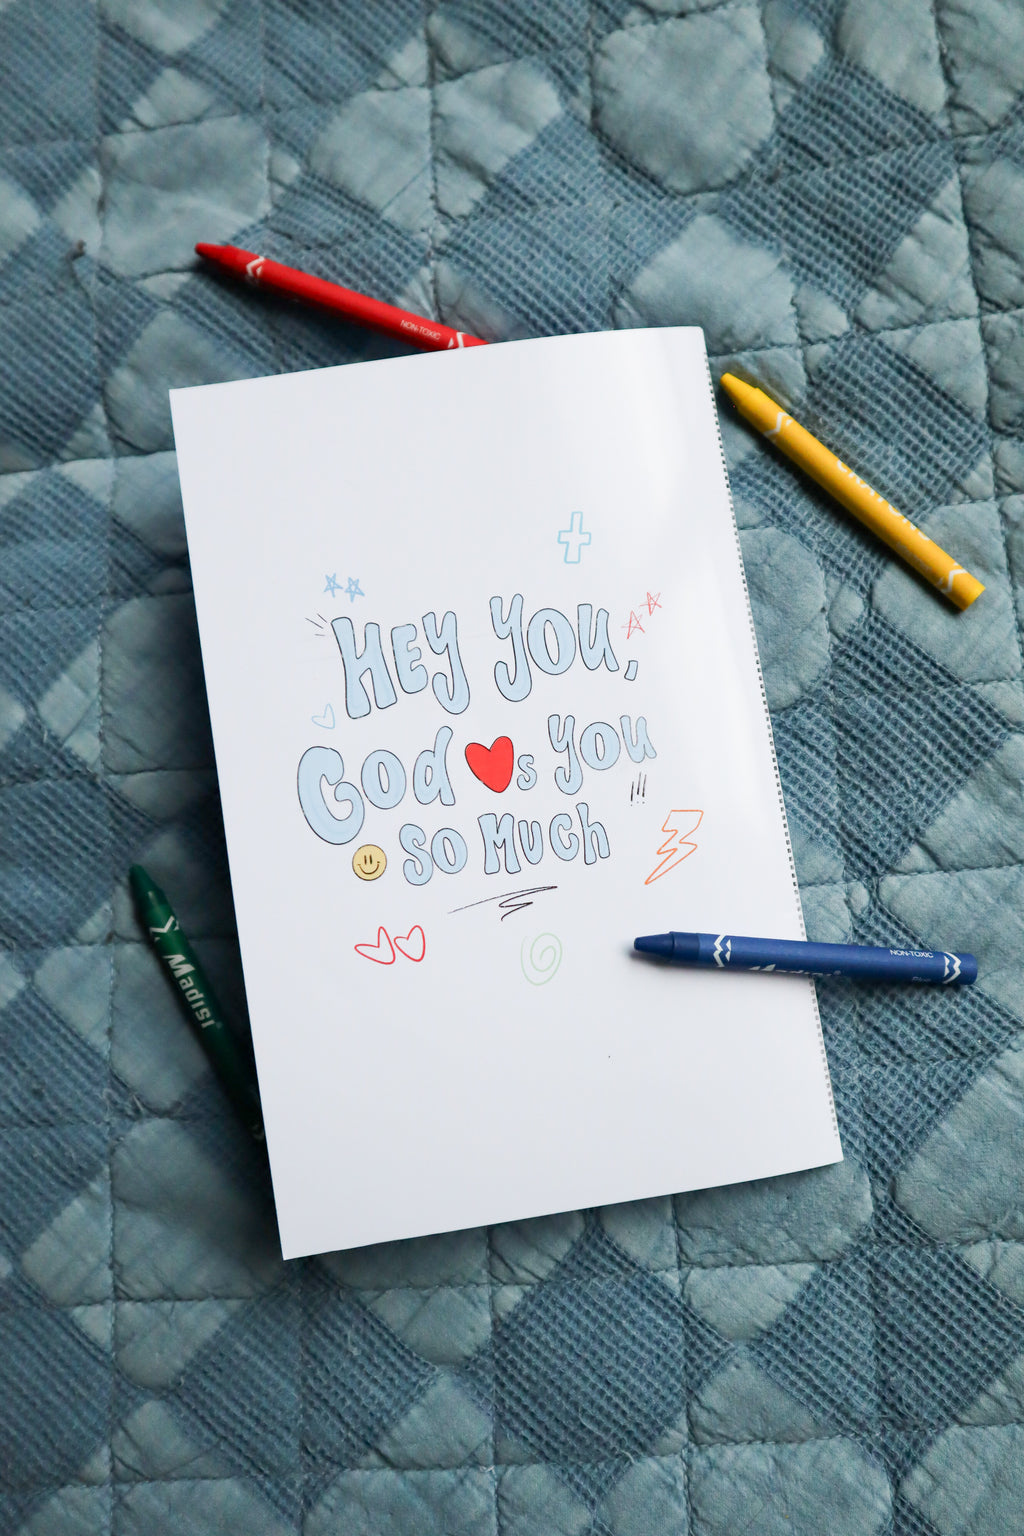 NON-TOXIC
HEY YOU,
God ❤s you
so Much
!!!
Madisi
Madisi
NON-TOXIC